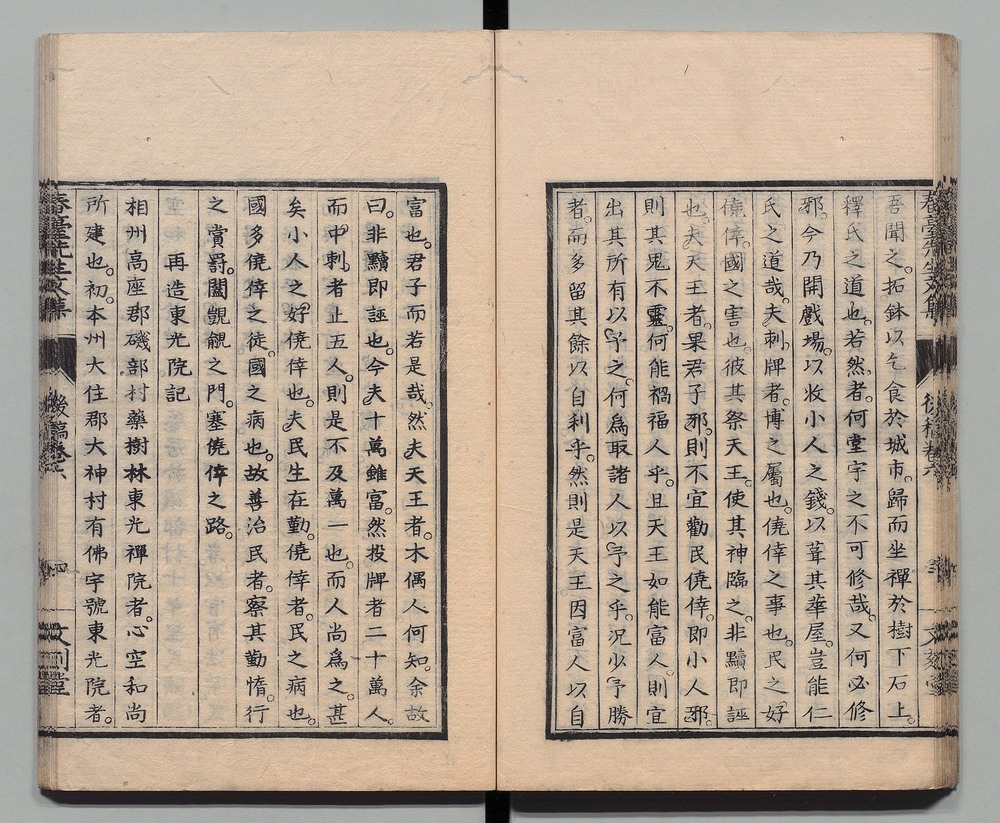 吾聞之。拓鉢以乞食於城市。歸而坐禪於樹下石上。
釋氏之道也。若然者。何堂宇之不可修哉。又何必修
邪。今乃開戲場。以收小人之錢。以葺其華屋。豈能仁
氏之道哉。夫刺牌者。博之屬也。僥倖之事也。民之好
僥倖。國之害也。彼其祭天王。使其神臨之。非黷即誣
也。夫天王者。果君子邪。則不宜勸民僥倖。即小人邪。
則其鬼不靈。何能禍福人乎。且天王如能富人。則宜
出其所有以予之。何爲取諸人以予之乎。況少予勝
者。而多留其餘以自利乎。然則是天王因富人以自
富也。君子而若是哉。然夫天王者。木偶人何知。余故
曰。非黷即誣也。今夫十萬雖富。然投牌者二十萬人。
而中刺者止五人。則是不及萬一也。而人尚爲之。甚
矣小人之好僥倖也。夫民生在勤。僥倖者。民之病也。
國多僥倖之徒。國之病也。故善治民者。察其勤惰。行
之賞罰。闔覬覦之門。塞僥倖之路。
再造東光院記
相州高座郡磯部村藥樹林東光禪院者。心空和尚
所建也。初。本州大住郡大神村有佛宇號東光院者。
春臺先生文集
後稿卷六
四